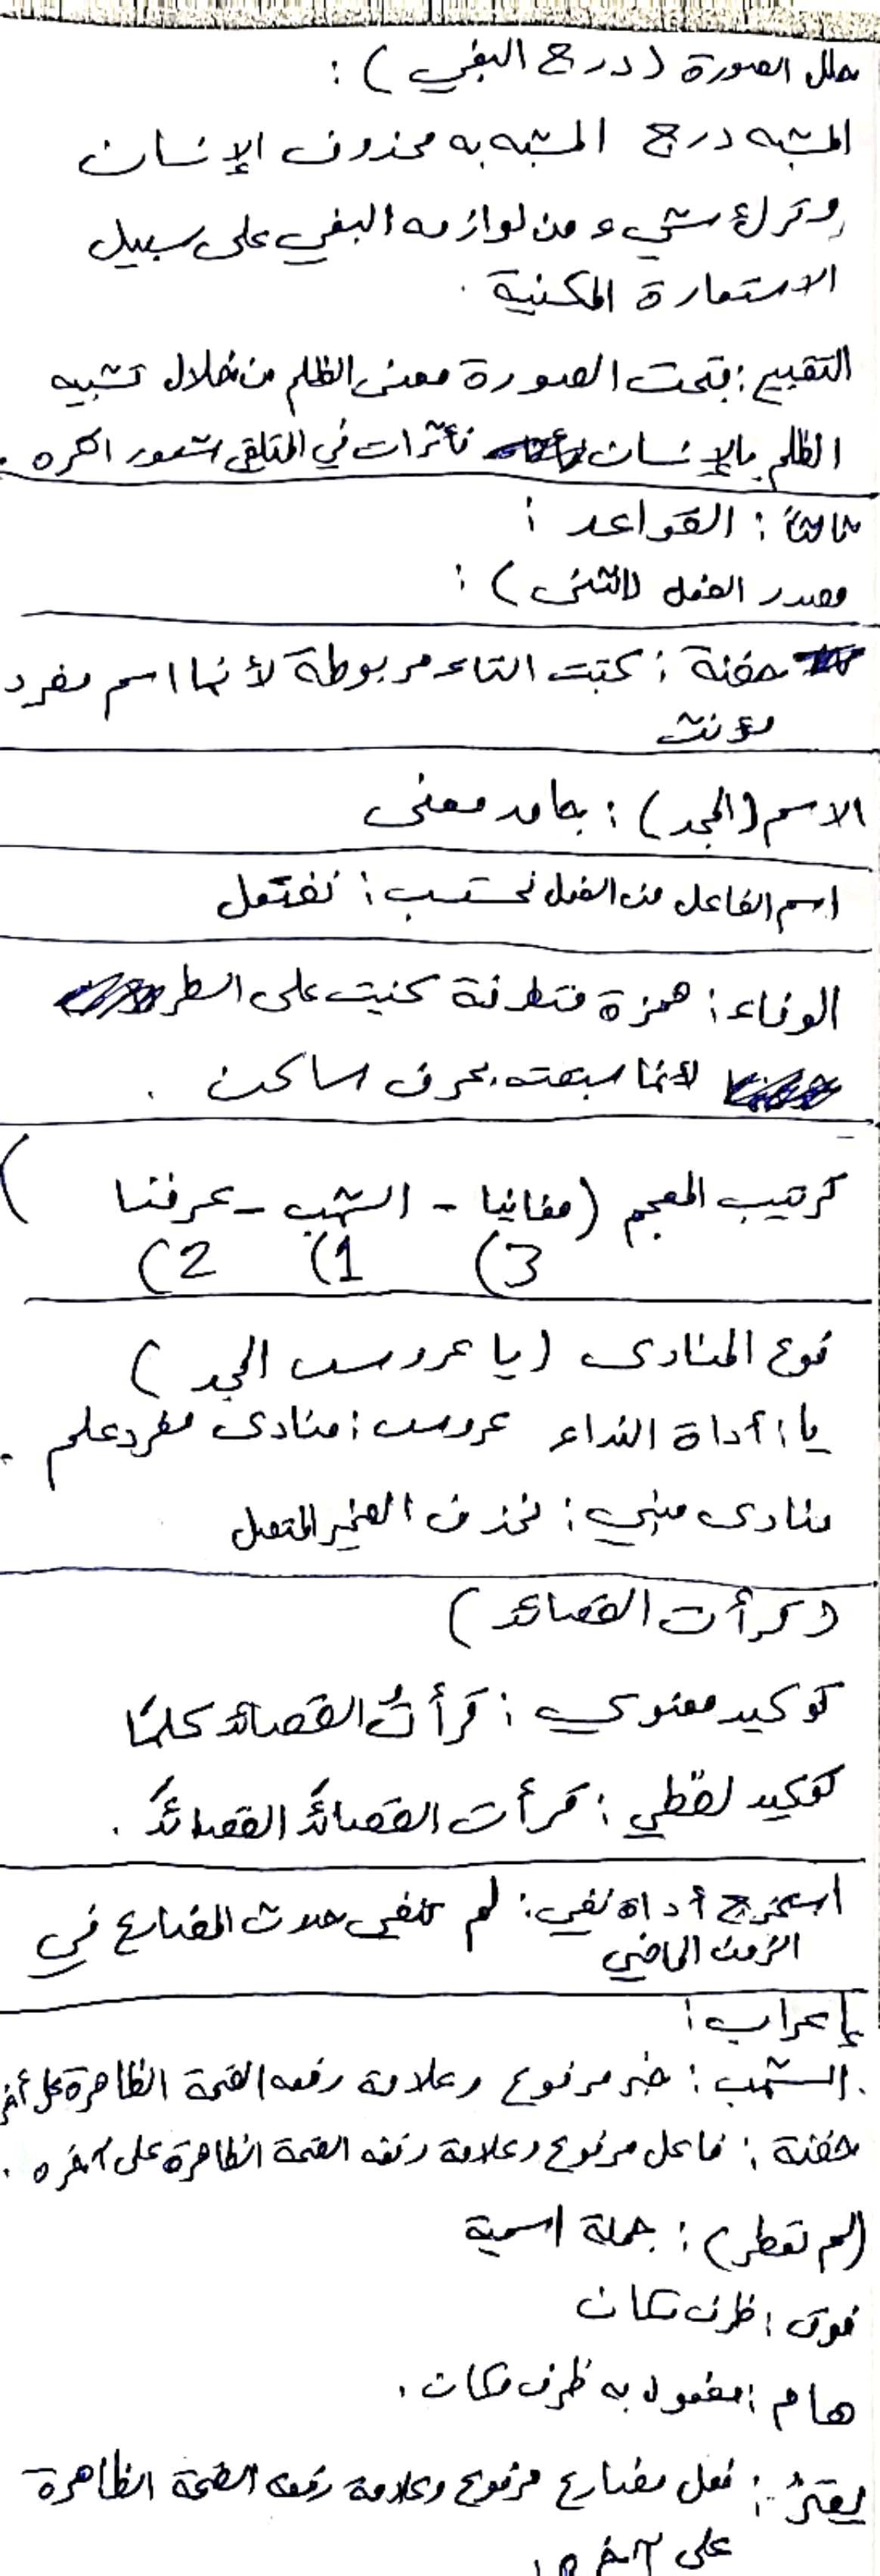 حلل الصورة (درج البغي) :
المشبه درج المشبه به محذوف الإنسان
وترك شيء من لوازمه البغي على سبيل
الاستعارة المكنية .
التقبيح : قبحت الصورة معنى الظلم من خلال تشبيه
الظلم بالإنسان تأثرات في المتلقي شعور اكره .
ثالثاً : القواعد :
مصدر الفعل (انتشى) :
حفنة : كتبت التاء مربوطة لأنها اسم مفرد
مؤنث
الاسم (المجد) : جامد معنى
اسم الفاعل من الفعل نحتسب : نفتعل
الوفاء : همزة متطرفة كتبت على السطر
لأنها سبقت بحرف ساكن .
ترتيب المعجم (مغانينا - الشهب - عرفنا )
3) 1) 2)
نوع المنادى (يا عروس المجد )
يا : أداة النداء عروس : منادى مفرد علم .
منادى مبني : نحذف الضمير المتصل
(قرأت القصائد )
توكيد معنوي : قرأتُ القصائد كلها
توكيد لفظي : قرأت القصائدَ القصائدَ .
استخرج أداة نفي : لم تنفي حدث المضارع في
الزمن الماضي
إعراب :
الشهب : خبر مرفوع وعلامة رفعه الضمة الظاهرة على أخر
حفنة : فاعل مرفوع وعلامة رفعه الضمة الظاهرة على آخره .
(لم تعطر) : جملة اسمية
فوق : ظرف مكان
هام : مفعول به ظرف مكان .
: فعل مضارع مرفوع وعلامة رفعه الضمة الظاهرة
على آخره .